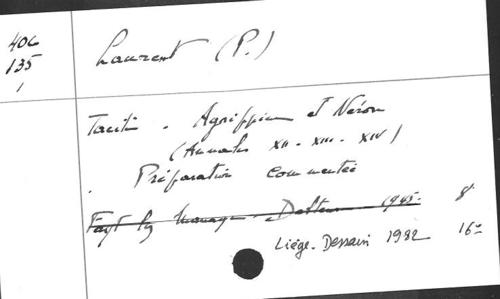 406
135
1
Laurent (P.)
Tacite. Agrippine et Néron
(Annales XII - XIII - XIV)
Préparation commentée
Fayt lez Manage - Delteur 1945 - 8°
Liége. Dessain 1982 16°